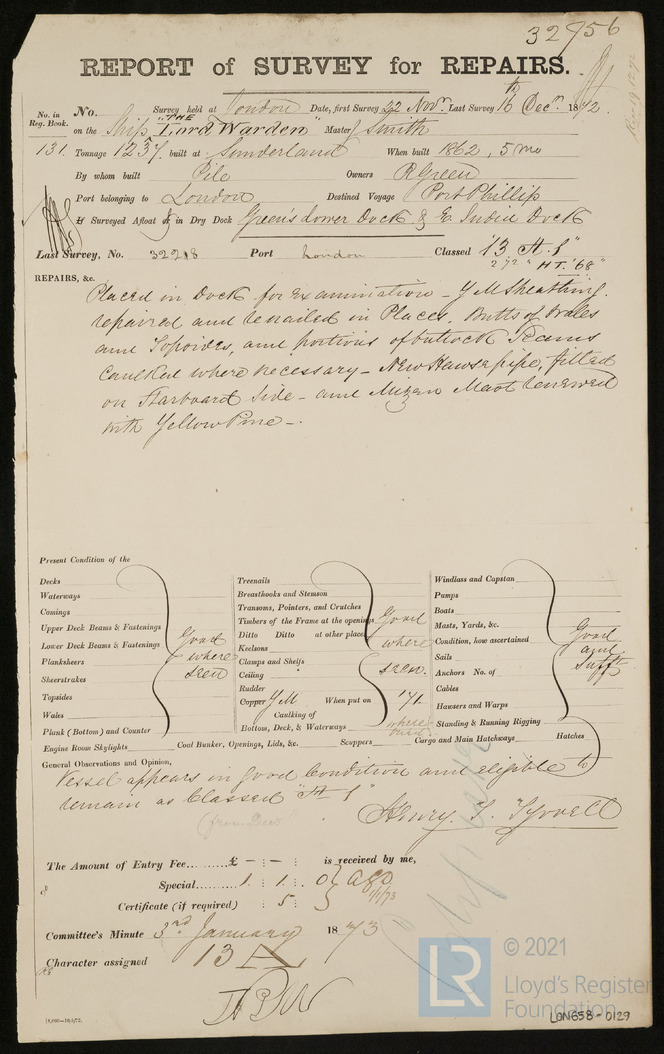 32956
REPORT of SURVEY for REPAIRS.
No. in Reg. Book.
No. Survey held at London Date, first Survey 22 Novr. Last Survey 16th Decr. 1872
on the Ship "THE Lord Warden" Master Smith
131 Tonnage 1237 built at Sunderland When built 1862, 5 mo
By whom built Pile Owners R Green
Port belonging to London Destined Voyage Port Phillip
If Surveyed Afloat or in Dry Dock Green's Lower Dock & E. India Dock
Last Survey, No. 32218 Port London Classed "13 A.1"
"HT. '68"
REPAIRS, &c.
Placed in Dock for Examination - Y M Sheathing
repaired and renailed in Places. Butts of Wales
and Topsides, and portions of buttock Seams
Caulked where necessary - New Hawse pipe, fitted
on Starboard Side - and Mizen Mast renewed
with Yellow Pine -.
Present Condition of the
Decks
Waterways
Comings
Upper Deck Beams & Fastenings
Lower Deck Beams & Fastenings
Planksheers
Sheerstrakes
Topsides
Wales
Plank (Bottom) and Counter
Good where seen
Treenails
Breasthooks and Stemson
Transoms, Pointers, and Crutches
Timbers of the Frame at the openings
Ditto Ditto at other places
Keelsons
Clamps and Shelfs
Ceiling
Rudder
Copper Y M When put on '71.
Caulking of
Bottom, Deck, & Waterways
Good where seen.
Windlass and Capstan
Pumps
Boats
Masts, Yards, &c.
Condition, how ascertained
Sails
Anchors No. of
Cables
Hawsers and Warps
Standing & Running Rigging
Good and Sufft
Engine Room Skylights Coal Bunker, Openings, Lids, &c. Scuppers Cargo and Main Hatchways Hatches
General Observations and Opinion,
Vessel appears in good Condition and eligible to
remain as Classed "A 1"
Henry T. Tyrrell
The Amount of Entry Fee........£ - : - : is received by me,
Special.......... 1 : 1 : 0
Certificate (if required) : 5 :
1/1/73
Committee's Minute 3rd January 1873
Character assigned 13 A
© 2021
LR
Lloyd's Register
Foundation
LON658-0129